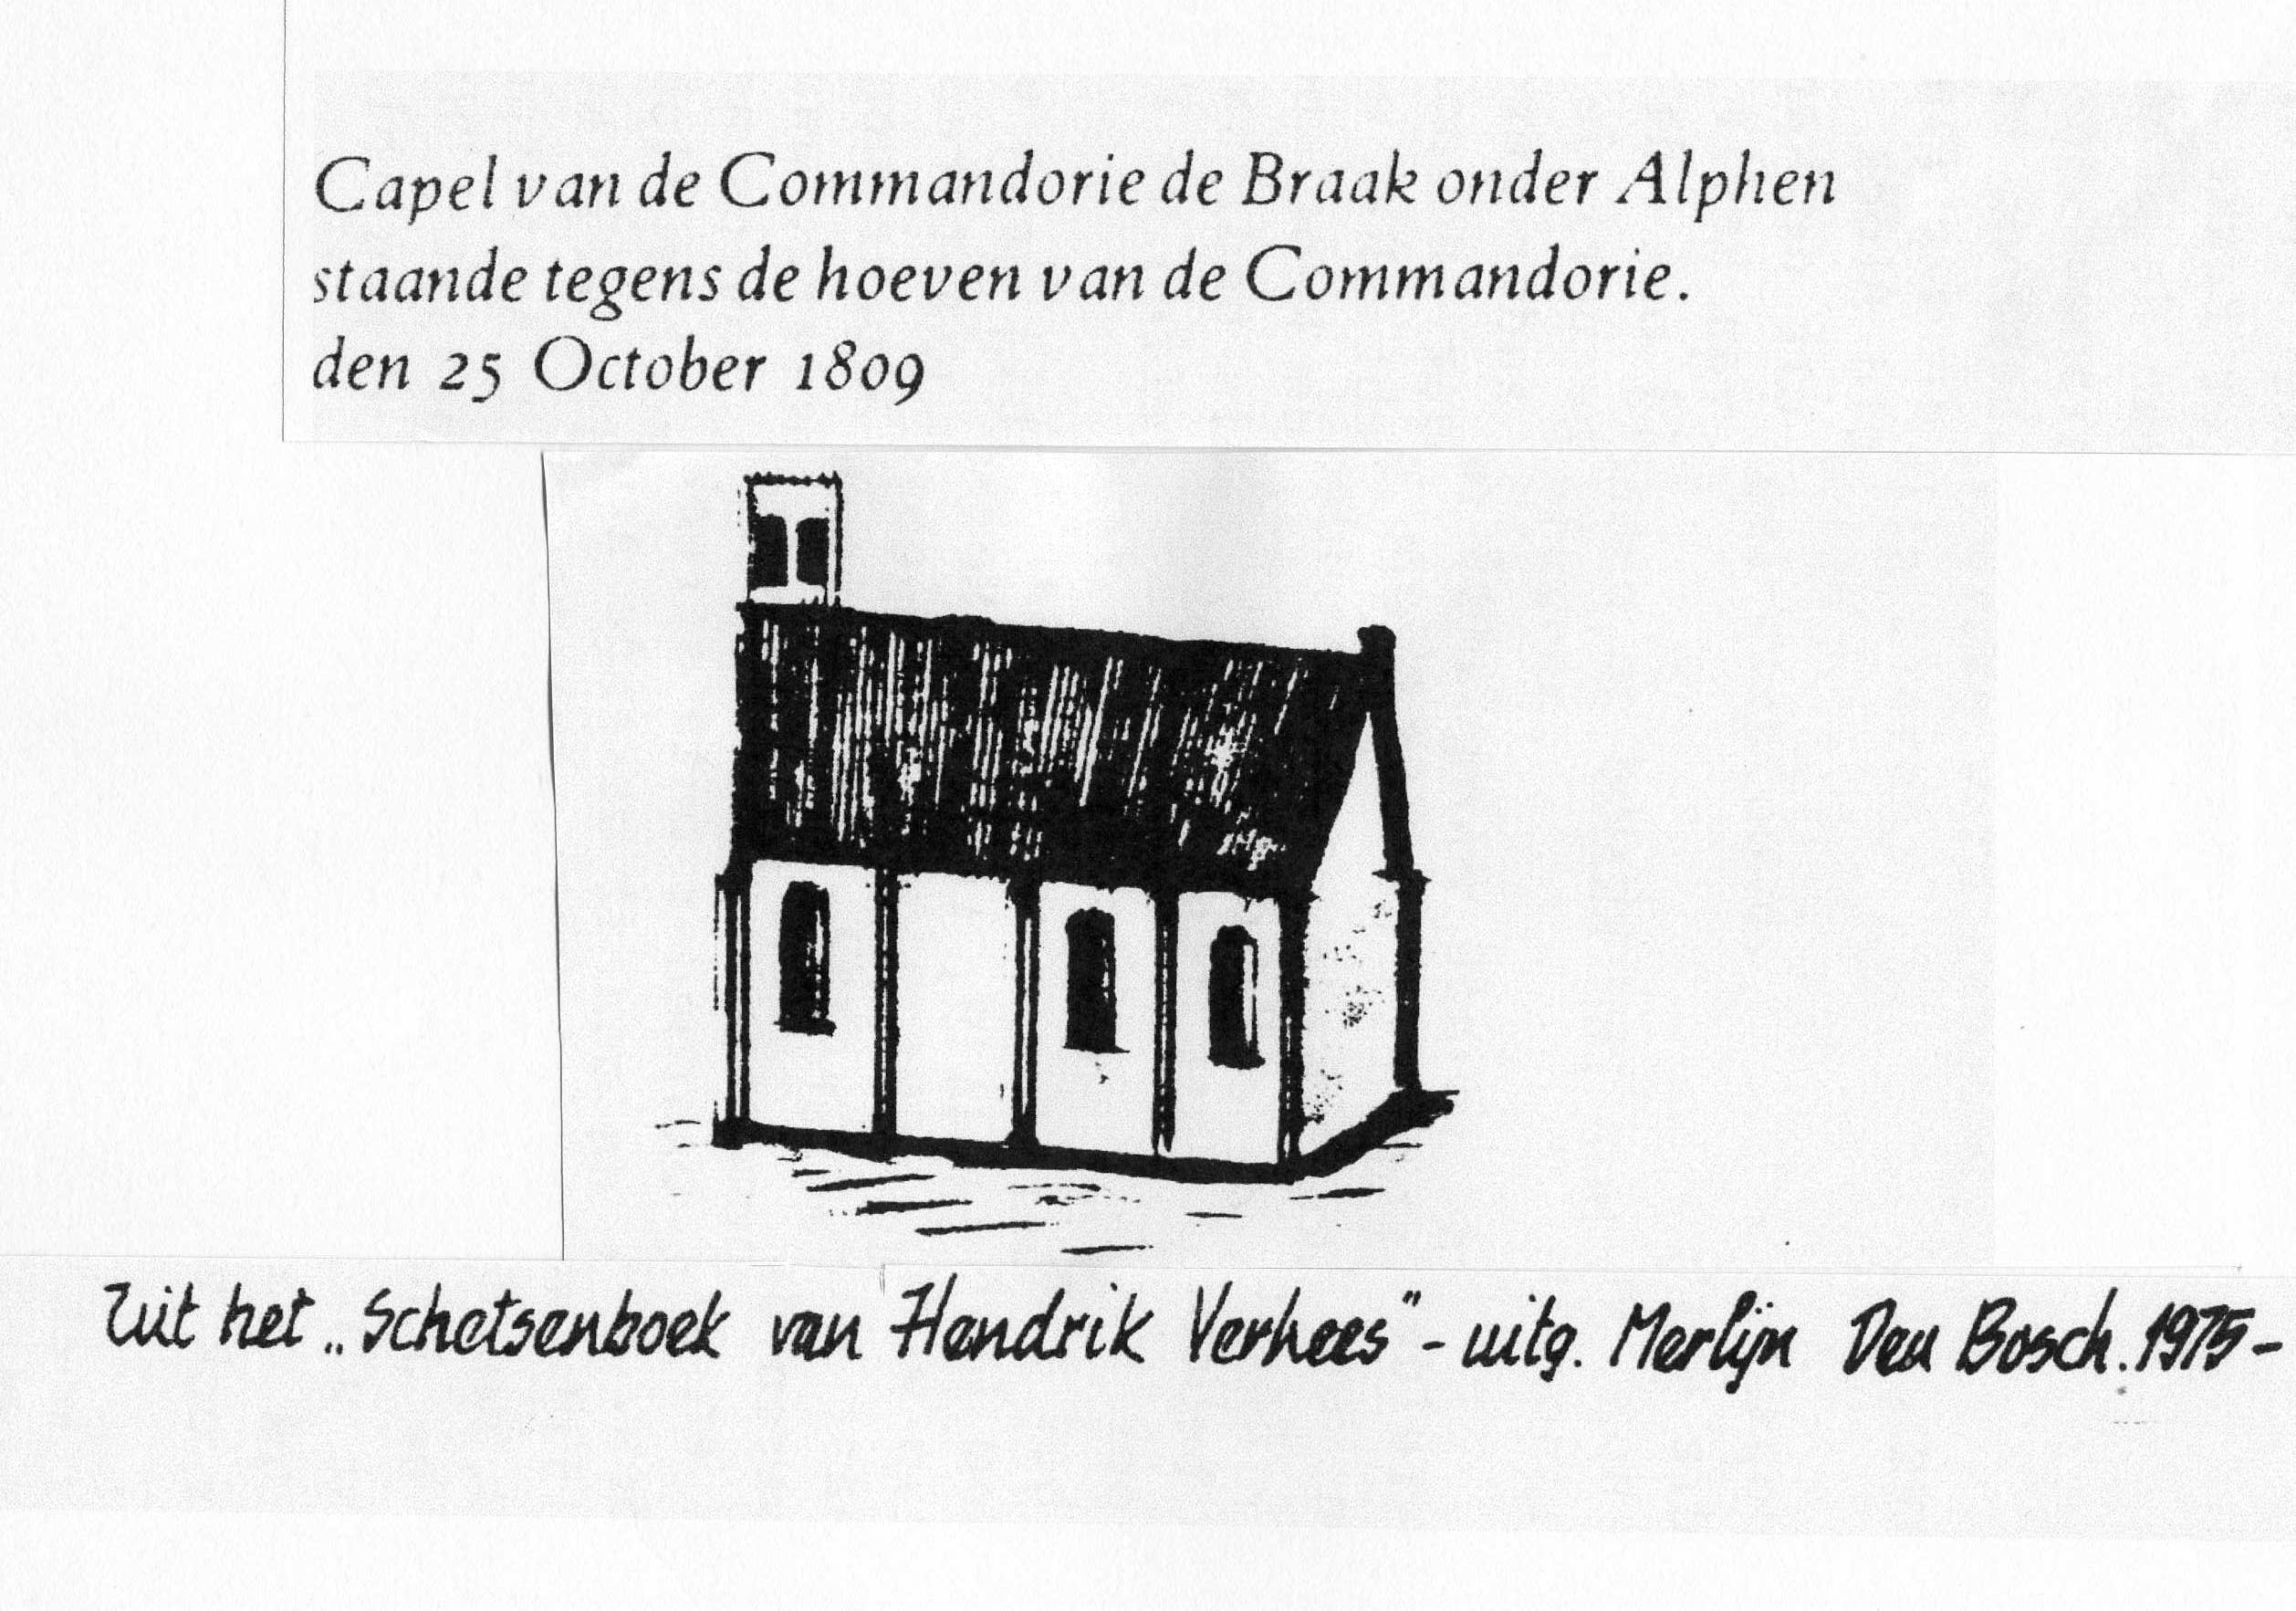 Capel van de Commandorie de Braak onder Alphen
staande tegens de hoeven van de Commandorie.
den 25 October 1809
Uit het „Schetsenboek van Hendrik Verhees" - uitg. Merlijn Den Bosch. 1975 -